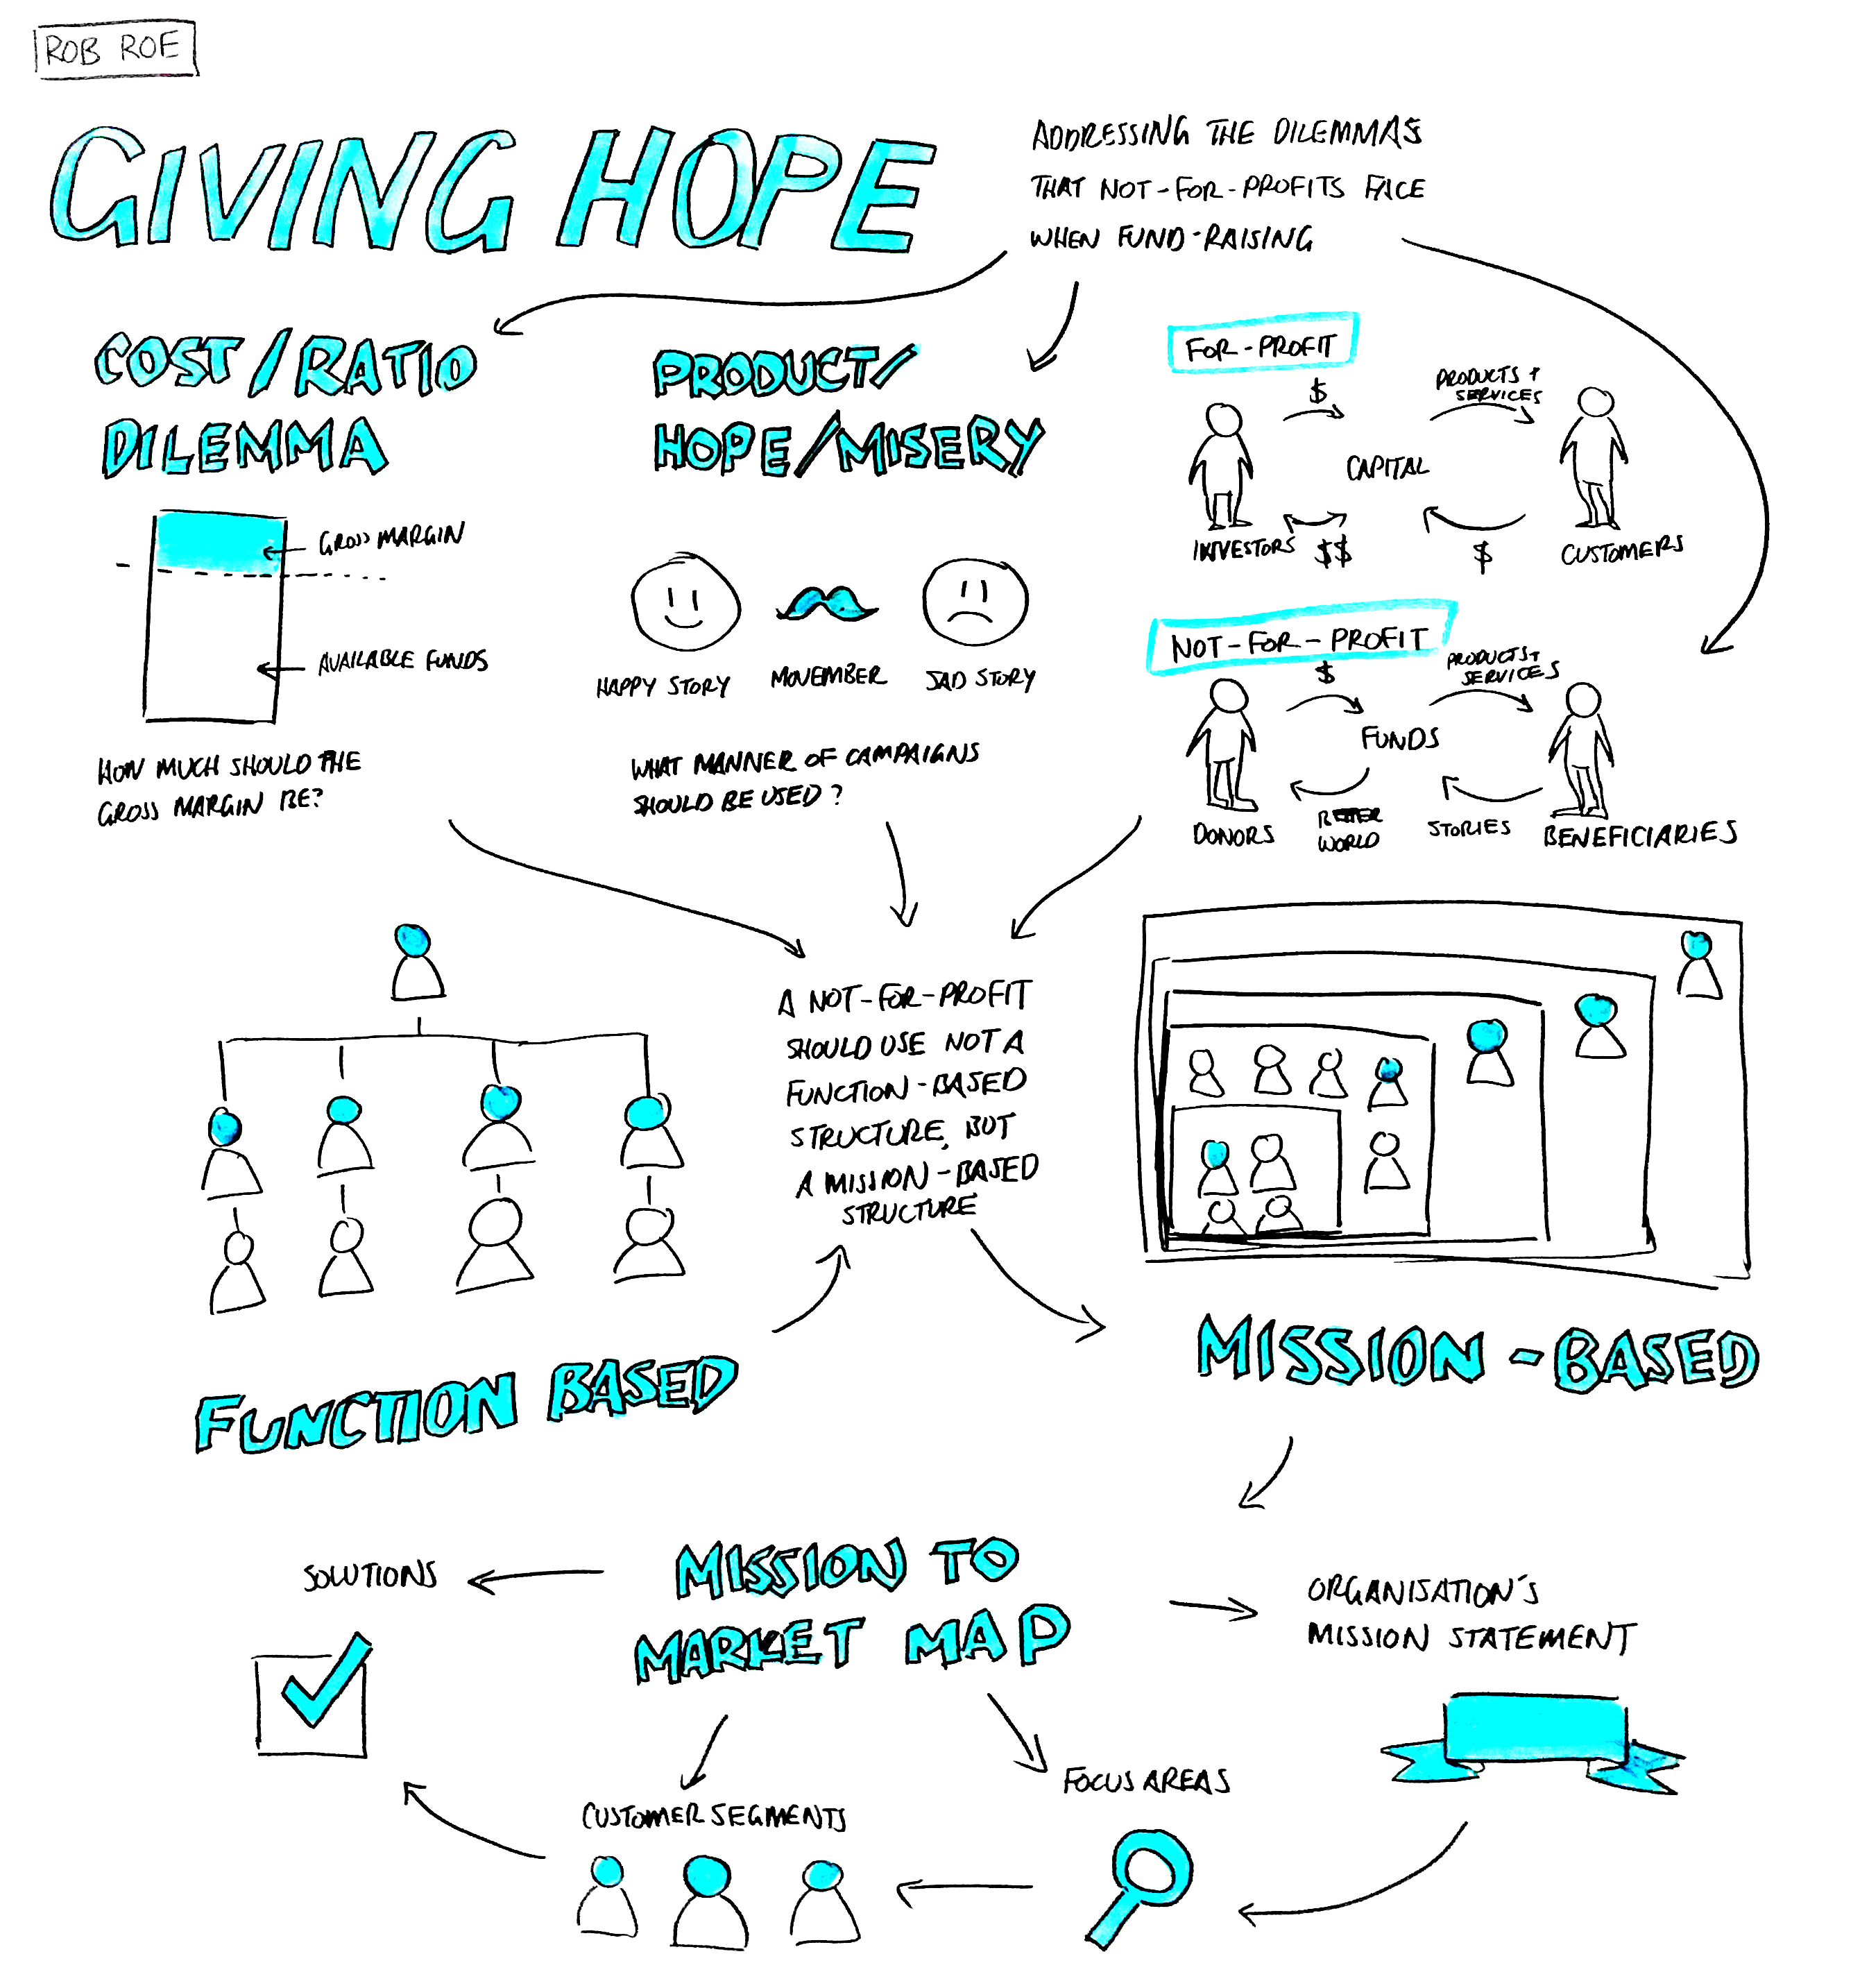 ROB ROE
GIVING HOPE
ADDRESSING THE DILEMMAS
THAT NOT-FOR-PROFITS FACE
WHEN FUND-RAISING
COST/RATIO
DILEMMA
GROSS MARGIN
AVAILABLE FUNDS
HOW MUCH SHOULD THE
GROSS MARGIN BE?
PRODUCT/
HOPE/MISERY
HAPPY STORY
MOVEMBER
SAD STORY
WHAT MANNER OF CAMPAIGNS
SHOULD BE USED?
FOR-PROFIT
$
PRODUCTS +
SERVICES
CAPITAL
INVESTORS
$$
$
CUSTOMERS
NOT-FOR-PROFIT
$
PRODUCTS+
SERVICES
FUNDS
DONORS
BETTER
WORLD
STORIES
BENEFICIARIES
A NOT-FOR-PROFIT
SHOULD USE NOT A
FUNCTION-BASED
STRUCTURE, BUT
A MISSION-BASED
STRUCTURE
FUNCTION BASED
MISSION-BASED
MISSION TO
MARKET MAP
SOLUTIONS
ORGANISATION'S
MISSION STATEMENT
FOCUS AREAS
CUSTOMER SEGMENTS